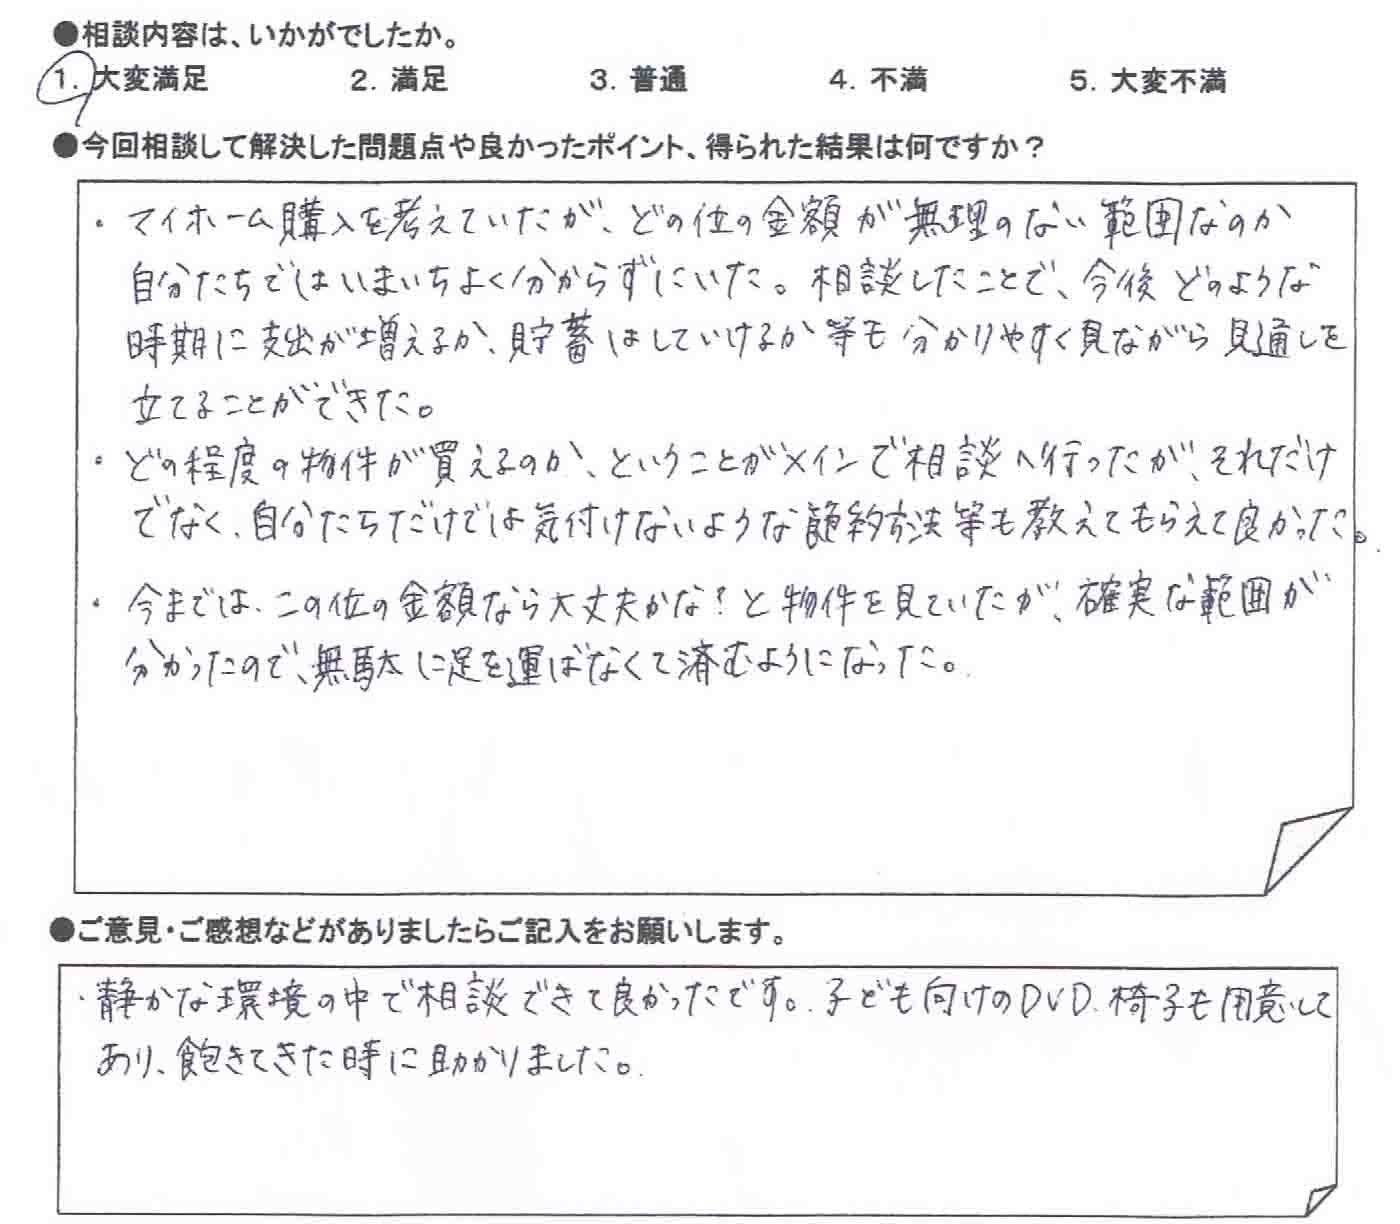 ●相談内容は、いかがでしたか。
1. 大変満足 2. 満足 3. 普通 4. 不満 5. 大変不満
●今回相談して解決した問題点や良かったポイント、得られた結果は何ですか？
・マイホーム購入を考えていたが、どの位の金額が無理のない範囲なのか
自分たちではいまいちよく分からずにいた。相談したことで、今後どのような
時期に支出が増えるか、貯蓄はしていけるか等も分かりやすく見ながら見通しを
立てることができた。
・どの程度の物件が買えるのか、ということがメインで相談へ行ったが、それだけ
でなく、自分たちだけでは気付けないような節約方法等も教えてもらえて良かった。
・今までは、この位の金額なら大丈夫かな？と物件を見ていたが、確実な範囲が
分かったので、無駄に足を運ばなくて済むようになった。
●ご意見・ご感想などがありましたらご記入をお願いします。
・静かな環境の中で相談できて良かったです。子ども向けのDVD、椅子も用意して
あり、飽きてきた時に助かりました。